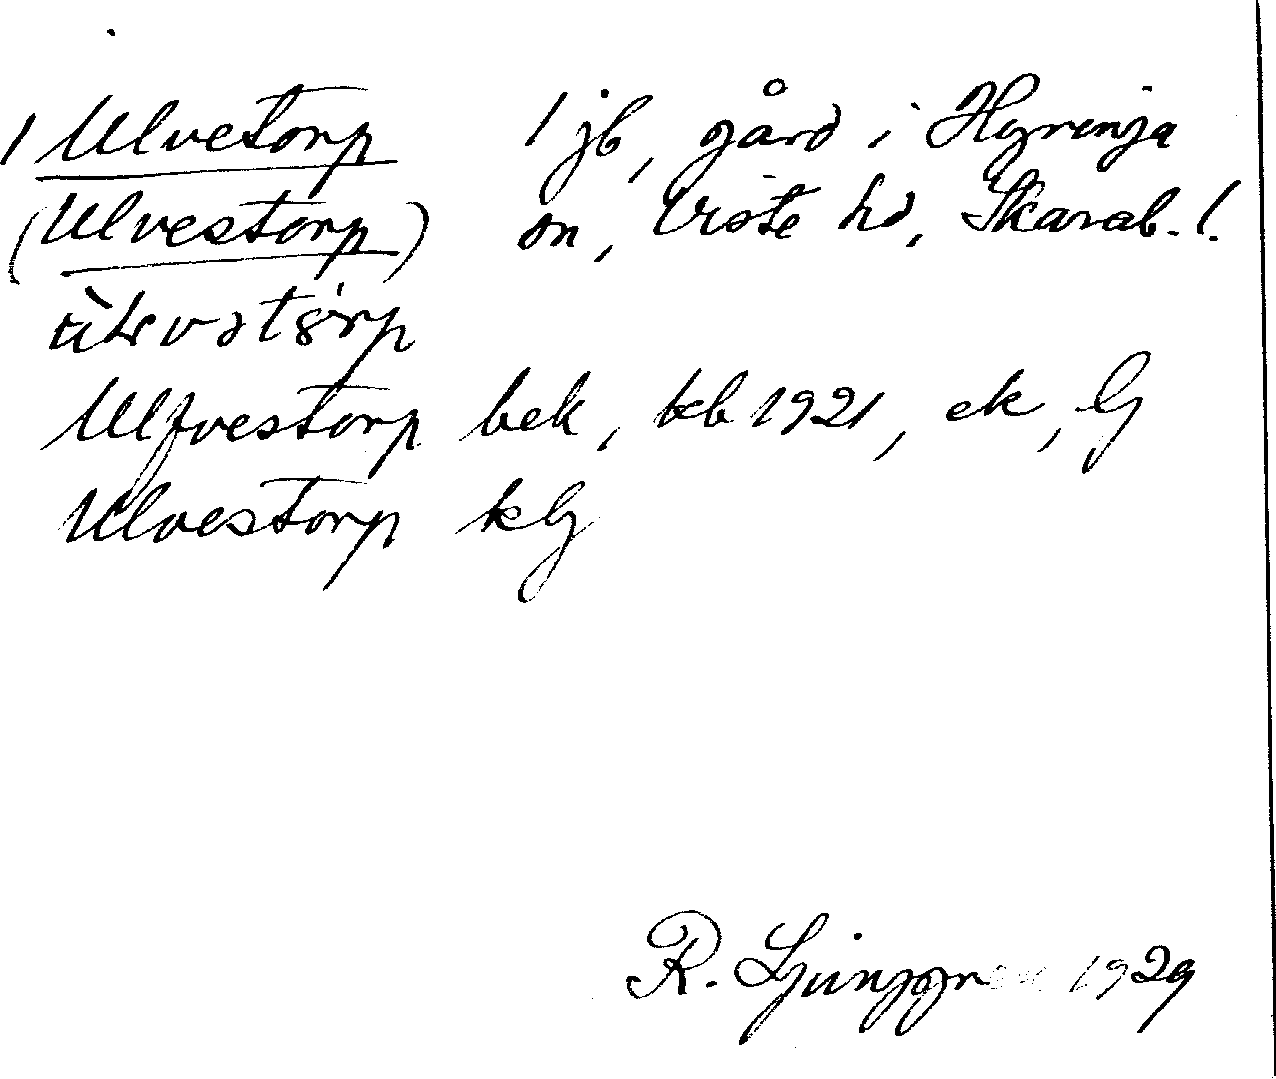 1 Ulvetorp 1 jb, gård i Hyringa
(Ulvestorp) sn, Viste hd, Skarab. l.
Ulfvestorp bek, kb 1921, ek, G
Ulvestorp kG
R. Ljunggren 1929